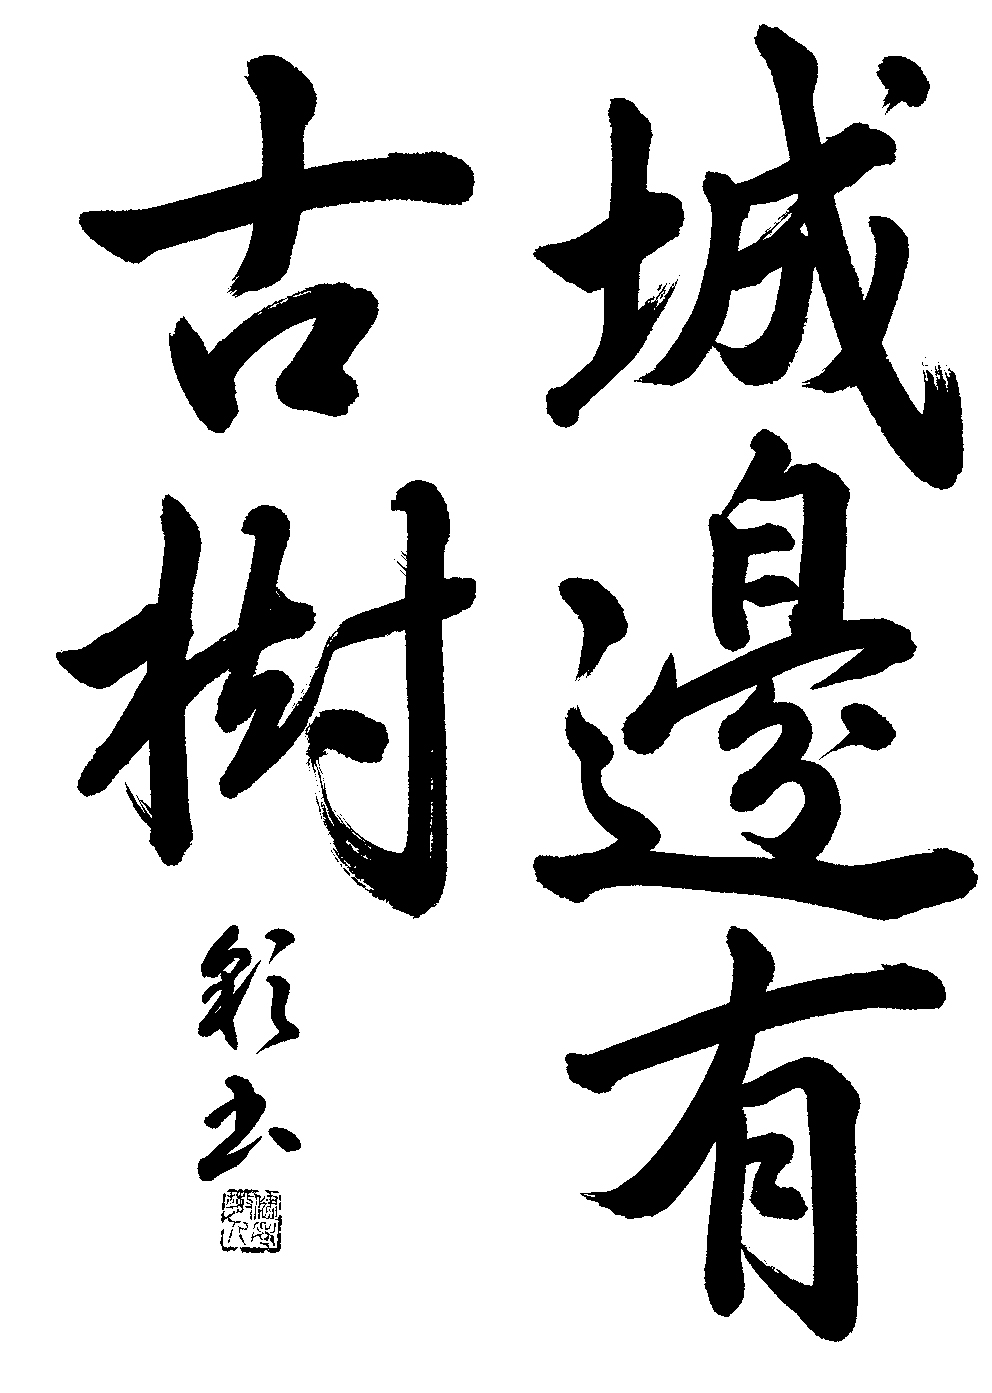 城邊有
古樹
彩書